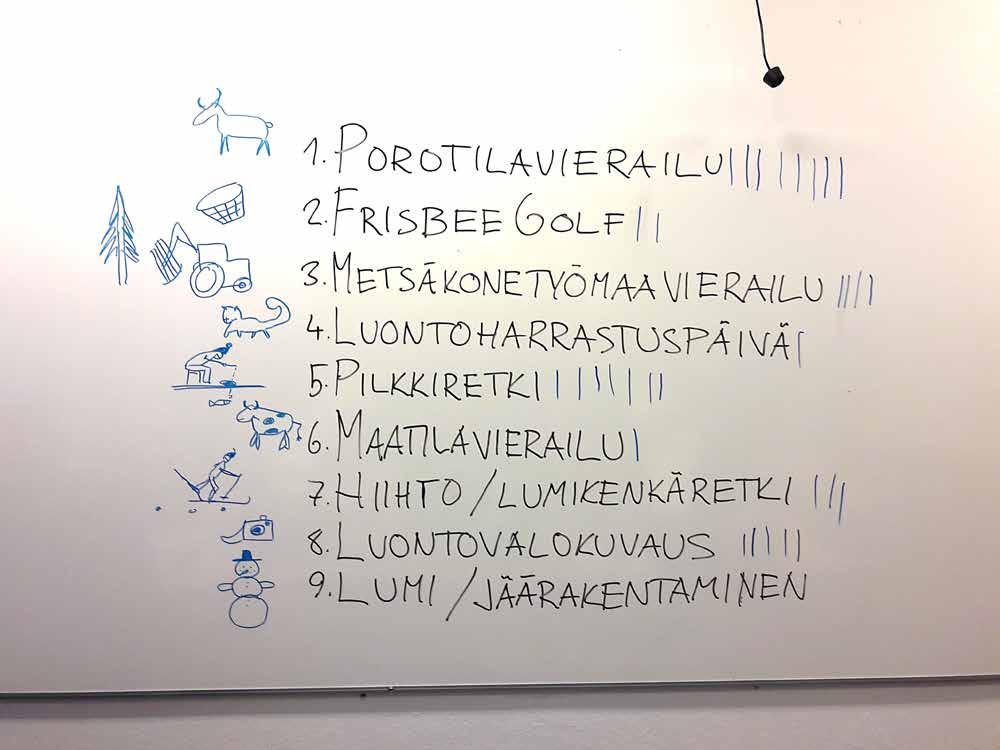 1. POROTILAVIERAILU |||||||||
2. FRISBEE GOLF ||
3. METSÄKONETYÖMAAVIERAILU ||||
4. LUONTOHARRASTUSPÄIVÄ |
5. PILKKIRETKI ||||||||
6. MAATILAVIERAILU |
7. HIIHTO / LUMIKENKÄRETKI |||
8. LUONTOVALOKUVAUS |||||
9. LUMI / JÄÄRAKENTAMINEN